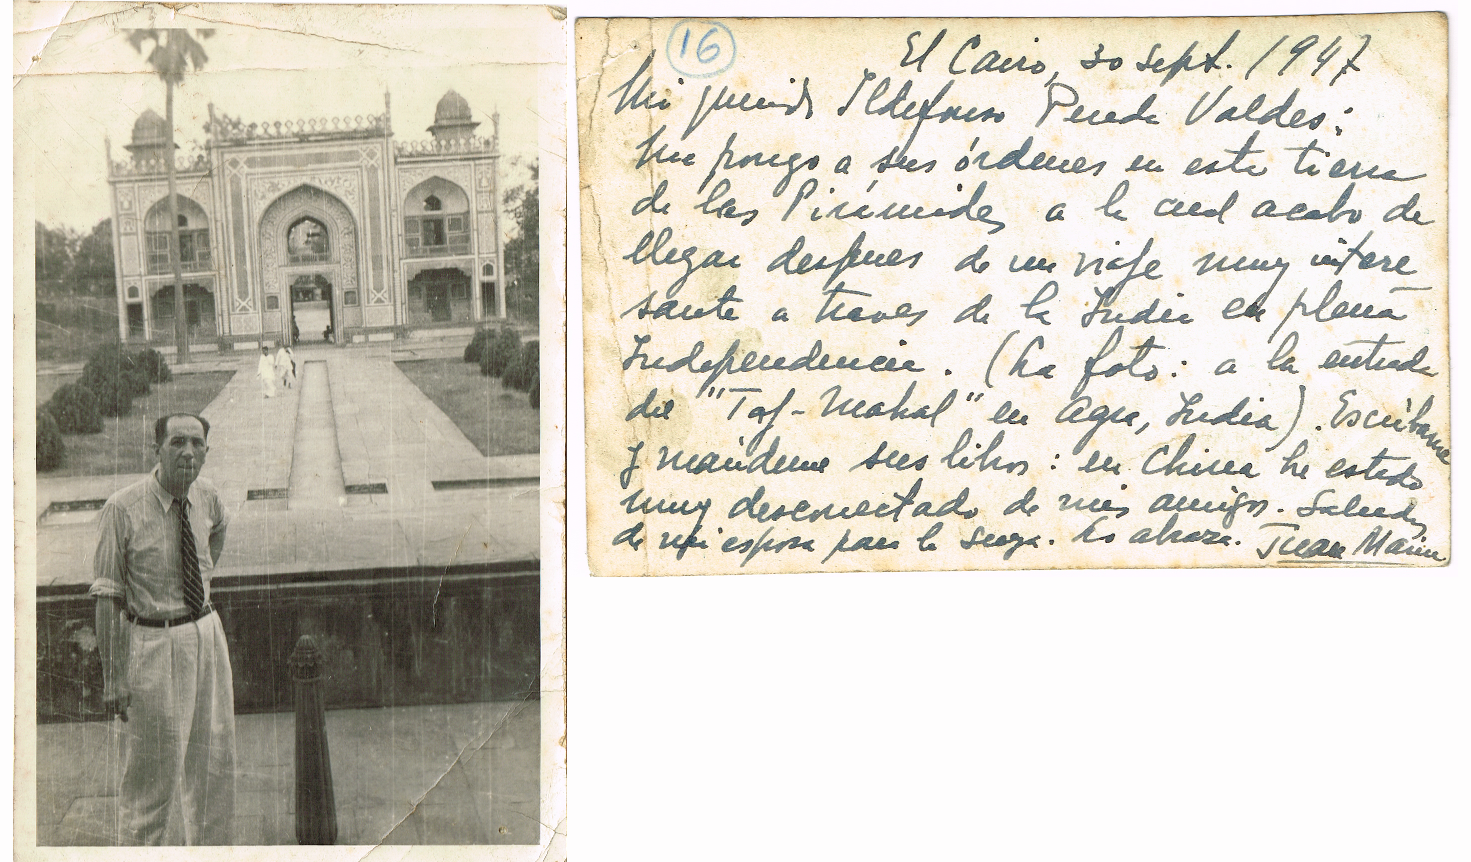 16
El Cairo, 30 Sept. 1947
Mi querido Ildefonso Pereda Valdes:
Me pongo a sus órdenes en esta tierra
de las Pirámides a la cual acabo de
llegar despues de un viaje muy intere
sante a traves de la India en plena
Independencia. (La foto: a la entrada
del "Taj-Mahal" en Agra, India). Escríbame
y mándeme sus libros: en China he estado
muy desconectado de mis amigos. Saludos
de mi esposa para la suya. Lo abraza. Juan Marin